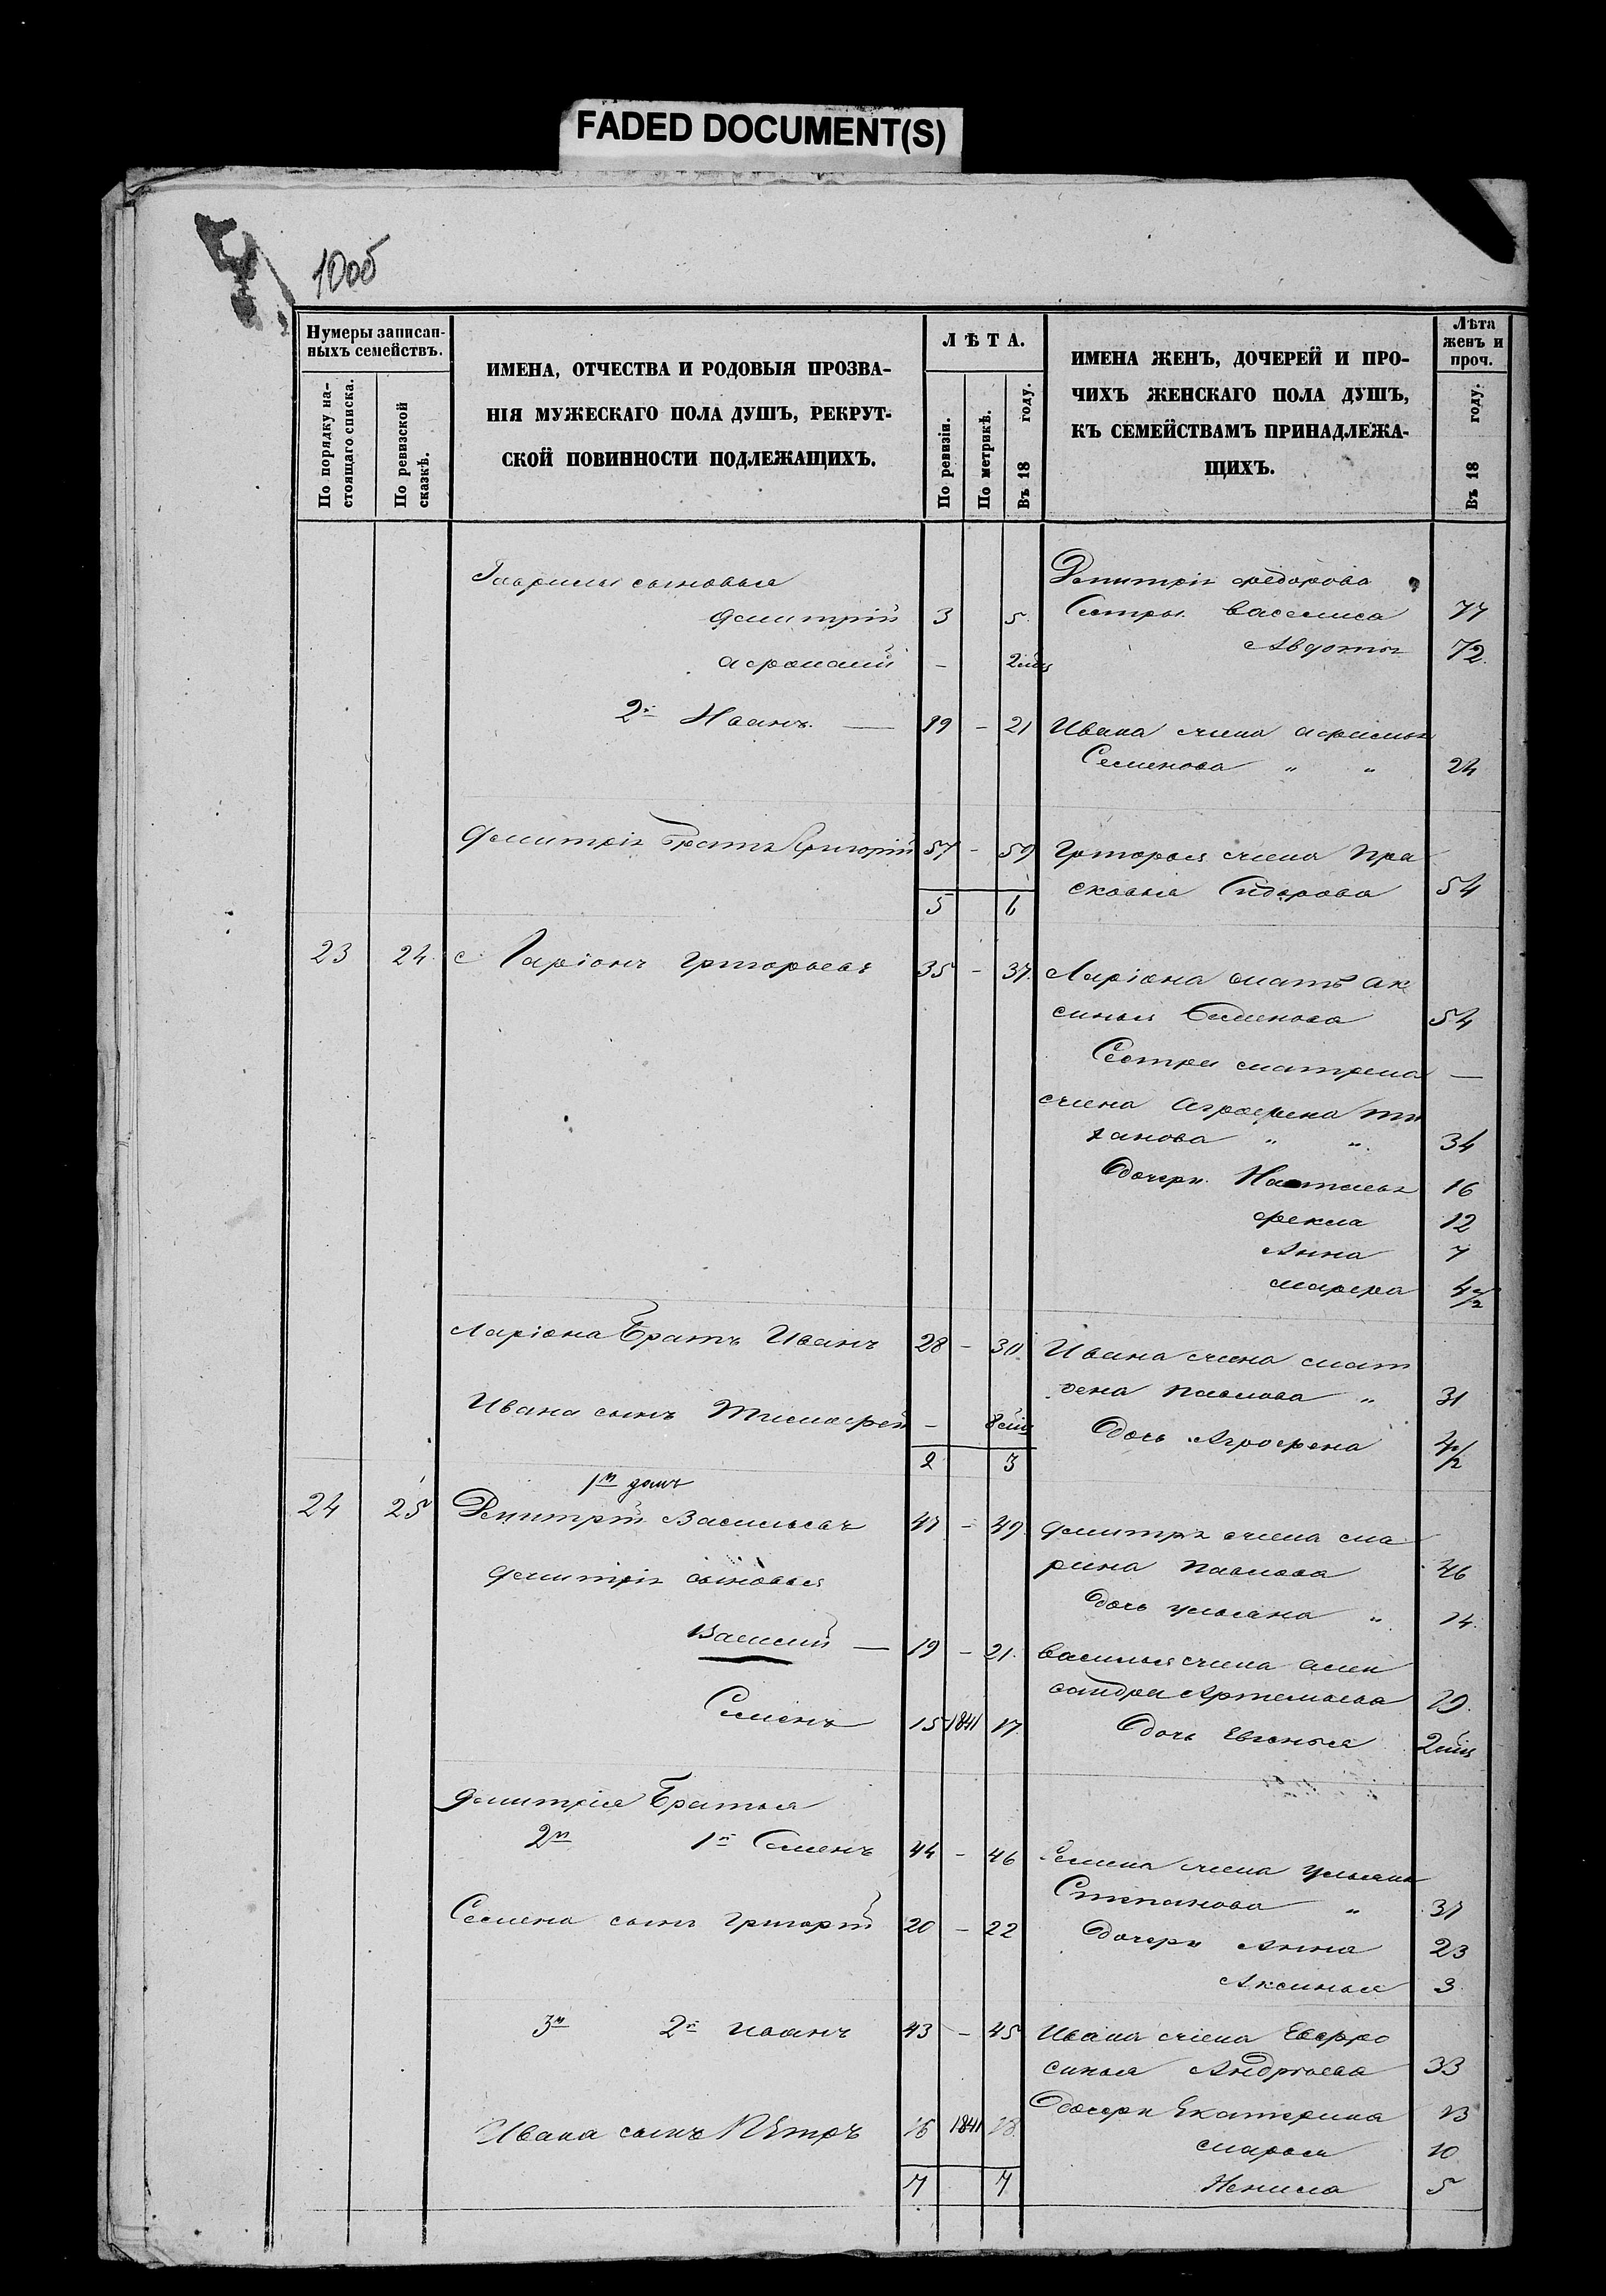 FADED DOCUMENT(S)
10об
Нумеры записан-
ныхъ семействъ.
По порядку на-
стоящаго списка.
По ревизской
сказкѣ.
ИМЕНА, ОТЧЕСТВА И РОДОВЫЯ ПРОЗВА-
НІЯ МУЖЕСКАГО ПОЛА ДУШЪ, РЕКРУТ-
СКОЙ ПОВИННОСТИ ПОДЛЕЖАЩИХЪ.
ЛѢТА.
По ревизіи.
По метрикѣ.
Въ 18 году.
ИМЕНА ЖЕНЪ, ДОЧЕРЕЙ И ПРО-
ЧИХЪ ЖЕНСКАГО ПОЛА ДУШЪ,
КЪ СЕМЕЙСТВАМЪ ПРИНАДЛЕЖА-
ЩИХЪ.
Лѣта
женъ и
проч.
Въ 18 году.
Гаврилы сыновья Дмитрія Федорова
Дмитрій 3 5 Сестры Василиса 77
Афонасій - Авдотья 72
2й Иванъ — 19 - 21 Ивана жена Афимья
Семенова " " 24
Дмитрія Братъ Григорій 57 - 59 Григорья жена Пра
сковья Сидорова 54
5 6
23 24 Ларіонъ Григорьевъ 35 - 37 Ларіона мать Ак
синья Семенова 54
Сестра Матрена —
жена Аграфена
" " 34
Дочери Наталья 16
Фекла 12
Анна 7
Марфа 4 1/2
Ларіона Братъ Иванъ 28 - 30 Ивана жена Мат
рена Павлова " 31
Ивана сынъ Тимофей - 8 Дочь Аграфена 4 1/2
2 3
1й домъ
24 25 Дмитрій Васильевъ 47 - 49 Дмитрія жена Ма
рина Павлова 46
Дмитрія сыновья Дочь Ульяна " 14
Василій — 19 - 21 Василья жена Алек
сандра Артемьева 19
Семенъ 15 1841 17 Дочь Евгенья 2
Дмитрія Братья
2й 1й Семенъ 44 - 46 Семена жена Ульяна
Степанова " 37
Семена сынъ Григорій 20 - 22 Дочери Анна 23
Аксинья 3
3й 2й Иванъ 43 - 45 Ивана жена Евфро
синья Андреева 33
Дочери Екатерина 13
Ивана сынъ Петръ 16 1841 18 Марья 10
7 7 5